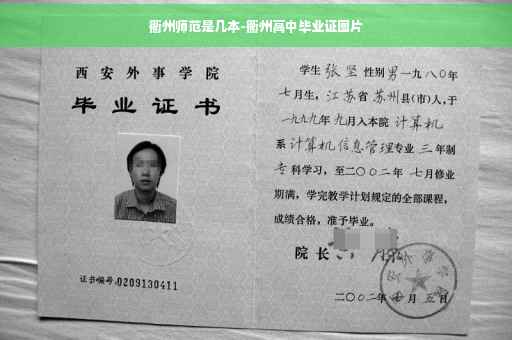 衢州师范是几本-衢州高中毕业证图片
西安外事学院
毕业证书
证书编号:0209130411
学生 张坚 性别 男 一九八〇年
七月生，江苏省 苏州县(市)人，于
一九九九年 九月入本院 计算机
系 计算机信息管理专业 三 年制
专科学习，至二〇〇二年 七月修业
期满，学完教学计划规定的全部课程，
成绩合格，准予毕业。
院长
二〇〇二年 月 五日